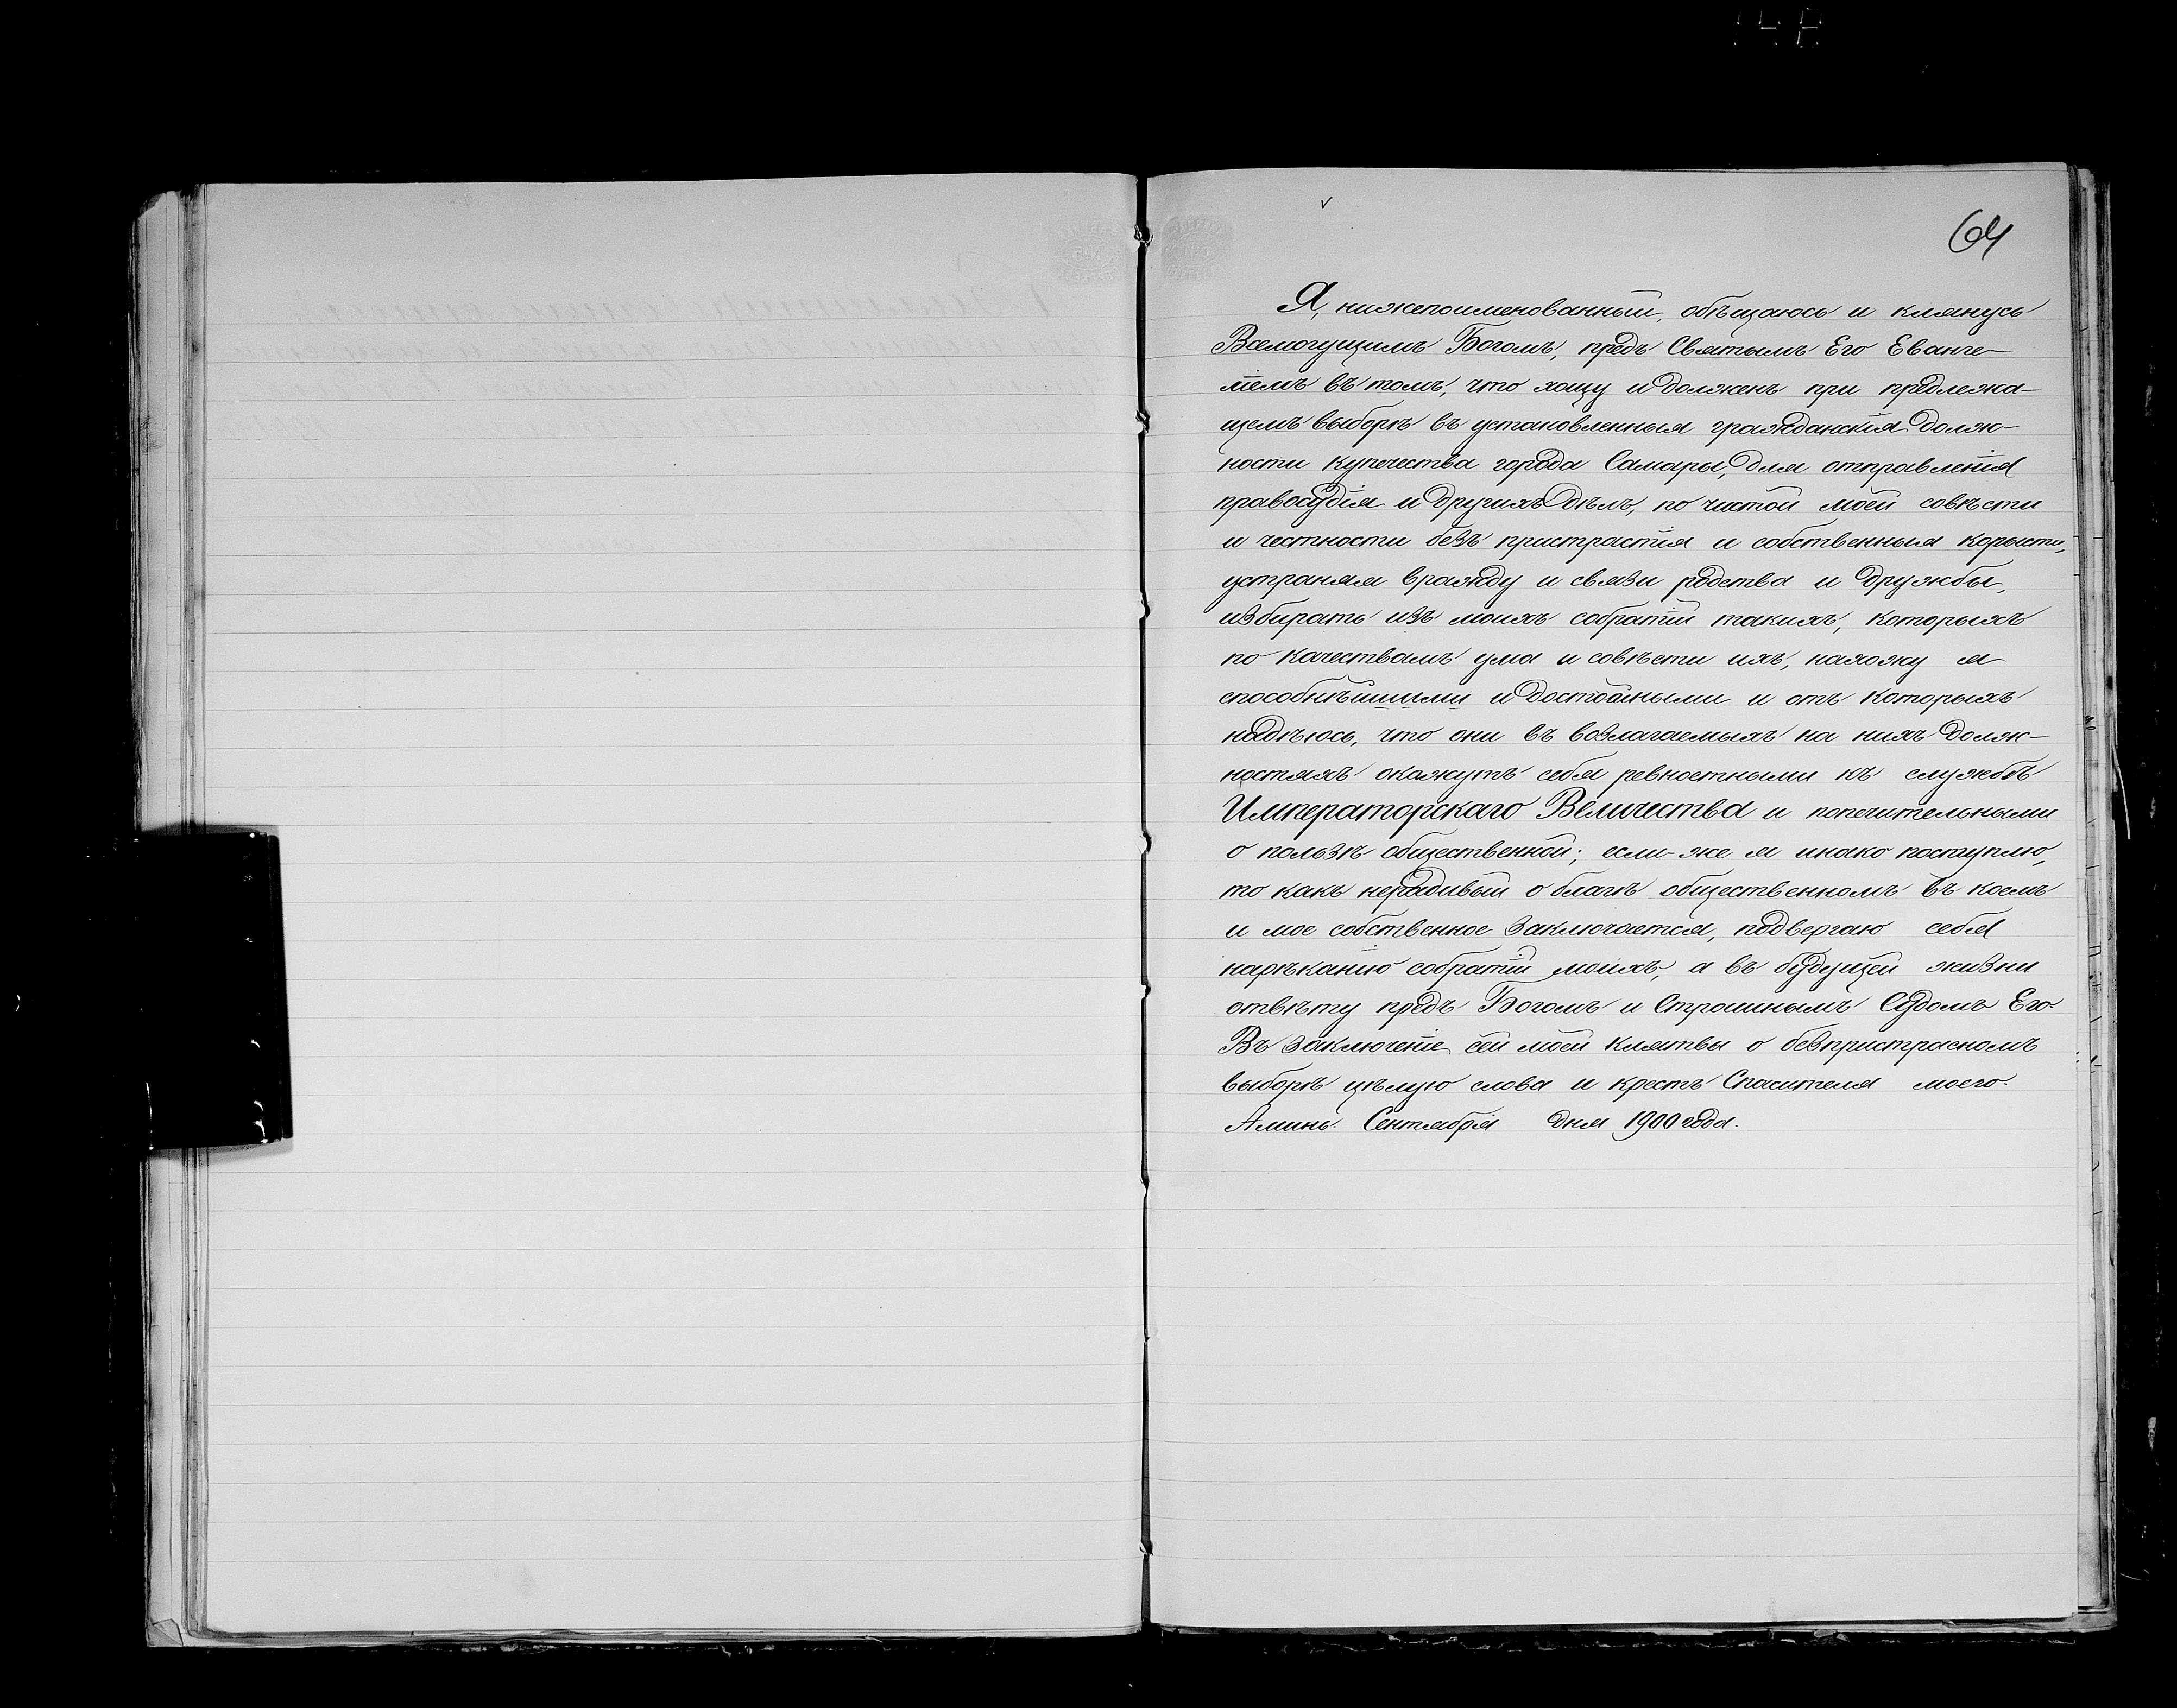 64
Я, нижепоименованный, обѣщаюсь и клянусь
Всемогущимъ Богомъ, предъ Святымъ Его Еванге-
ліемъ въ томъ, что хощу и долженъ при предлежа-
щемъ выборѣ въ установленныя гражданскія долж-
ности купечества города Самары, для отправленія
правосудія и другихъ дѣлъ, по чистой моей совѣсти
и честности безъ пристрастія и собственныя корысти,
устраняя вражду и связи родства и дружбы,
избирать изъ моихъ собратій такихъ, которыхъ
по качествамъ ума и совѣсти ихъ, нахожу я
способнѣйшими и достойными и отъ которыхъ
надѣюсь, что они въ возлагаемыхъ на нихъ долж-
ностяхъ окажутъ себя ревностными къ службѣ
Императорскаго Величества и попечительными
о пользѣ общественной; если-же я инако поступлю,
то какъ нерадивый о благѣ общественномъ въ коемъ
и мое собственное заключается, подвергаю себя
нарѣканію собратій моихъ, а въ будущей жизни
отвѣту предъ Богомъ и Страшнымъ Судомъ Его.
Въ заключеніе сей моей клятвы о безпристрасномъ
выборѣ цѣлую слова и крестъ Спасителя моего.
Аминь. Сентября дня 1900 года.